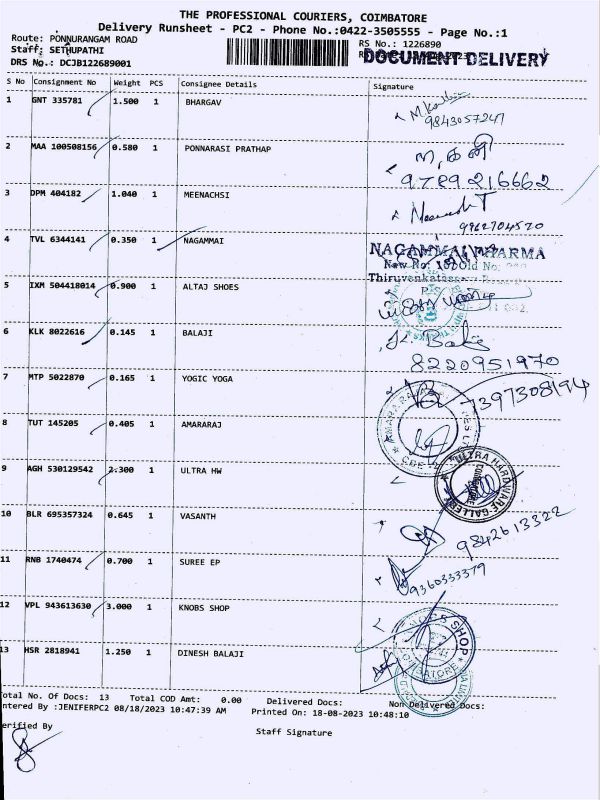 THE PROFESSIONAL COURIERS, COIMBATORE
Delivery Runsheet - PC2 - Phone No.:0422-3505555 - Page No.:1
Route: PONNURANGAM ROAD
RS No.: 1226890
Staff: SETHUPATHI
DOCUMENT DELIVERY
DRS No.: DCJB122689001
S No Consignment No Weight PCS Consignee Details Signature
1 GNT 335781 1.500 1 BHARGAV
9843057247
2 MAA 100508156 0.580 1 PONNARASI PRATHAP
9789216662
3 DPM 404182 1.040 1 MEENACHSI
9962704570
4 TVL 6344141 0.350 1 NAGAMMAI
NAGAMMAI PHARMA
New No: Old No:
5 IXM 504418014 0.900 1 ALTAJ SHOES
6 KLK 8022616 0.145 1 BALAJI
8220951970
7 MTP 5022870 0.165 1 YOGIC YOGA
7397308194
8 TUT 145205 0.405 1 AMARARAJ
9 AGH 530129542 2.300 1 ULTRA HW
ULTRA HARDWARE GALLERY
10 BLR 695357324 0.645 1 VASANTH
9842613322
11 RNB 1740474 0.700 1 SUREE EP
9360333379
12 VPL 943613630 3.000 1 KNOBS SHOP
13 HSR 2818941 1.250 1 DINESH BALAJI
otal No. Of Docs: 13 Total COD Amt: 0.00 Delivered Docs: Non Delivered Docs:
ntered By :JENIFERPC2 08/18/2023 10:47:39 AM Printed On: 18-08-2023 10:48:10
erified By
Staff Signature